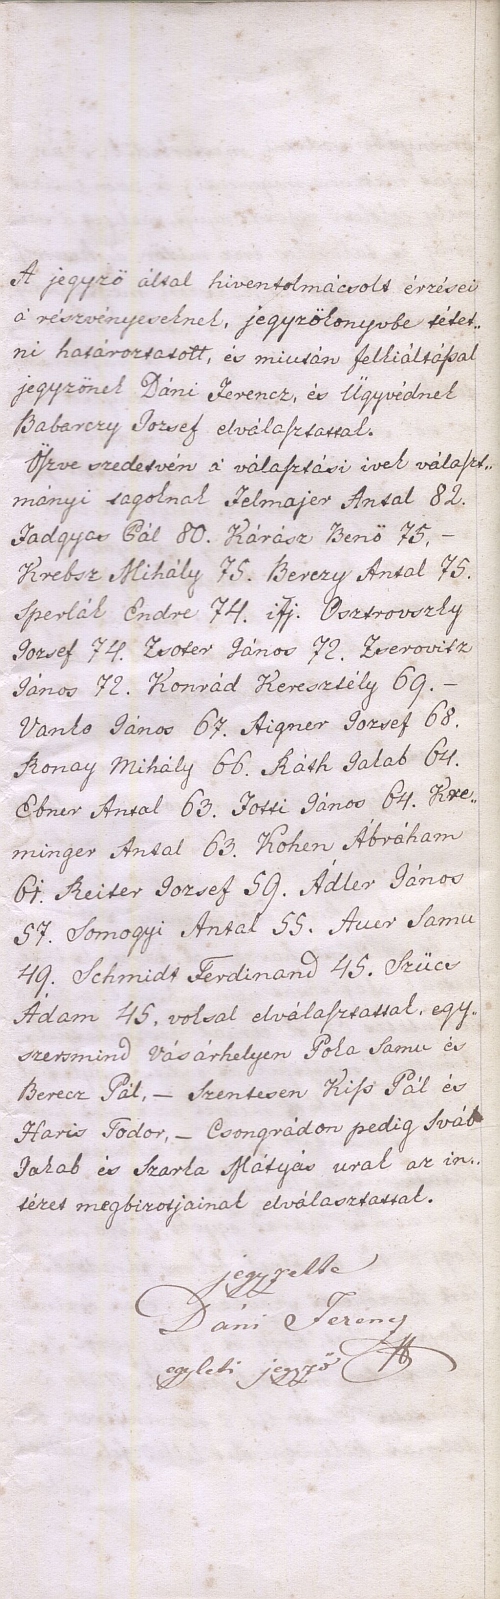 A jegyző által hiventolmácsolt érzései
a' részvényeseknek, jegyzőkönyvbe tétet„
ni határoztatott, és miután felkiáltással
jegyzőnek Dáni Ferencz, és Ügyvédnek
Babarczy Jozsef elválasztattak.
Öszve szedetvén a' választási ivek választ„
mányi tagoknak Felmajer Antal 82.
Fadgyas Pál 80. Kárász Benő 75, –
Krebsz Mihály 75. Berczy Antal 75.
Sperlák Endre 74. ifj. Osztrovszky
Jozsef 74. Zsoter János 72. Zserovitz
János 72. Konrád Keresztély 69. –
Vanko János 67. Aigner Jozsef 68.
Ronay Mihály 66. Ráth Jakab 64.
Ebner Antal 63. Jotti János 64. Kre„
minger Antal 63. Kohen Ábráham
61. Reiter Jozsef 59. Ádler János
57. Somogyi Antal 55. Auer Samu
49. Schmidt Ferdinand 45. Szücs
Ádám 45. voksal elválasztattak, egy„
szersmind Vásárhelyen Pola Samu és
Berecz Pál, – Szentesen Kiss Pál és
Haris Todor, – Csongrádon pedig Sváb
Jakab és Szarka Mátyás urak az in„
tézet megbizotjainak elválasztattak.
jegyzette
Dáni Ferencz
egyleti jegyző